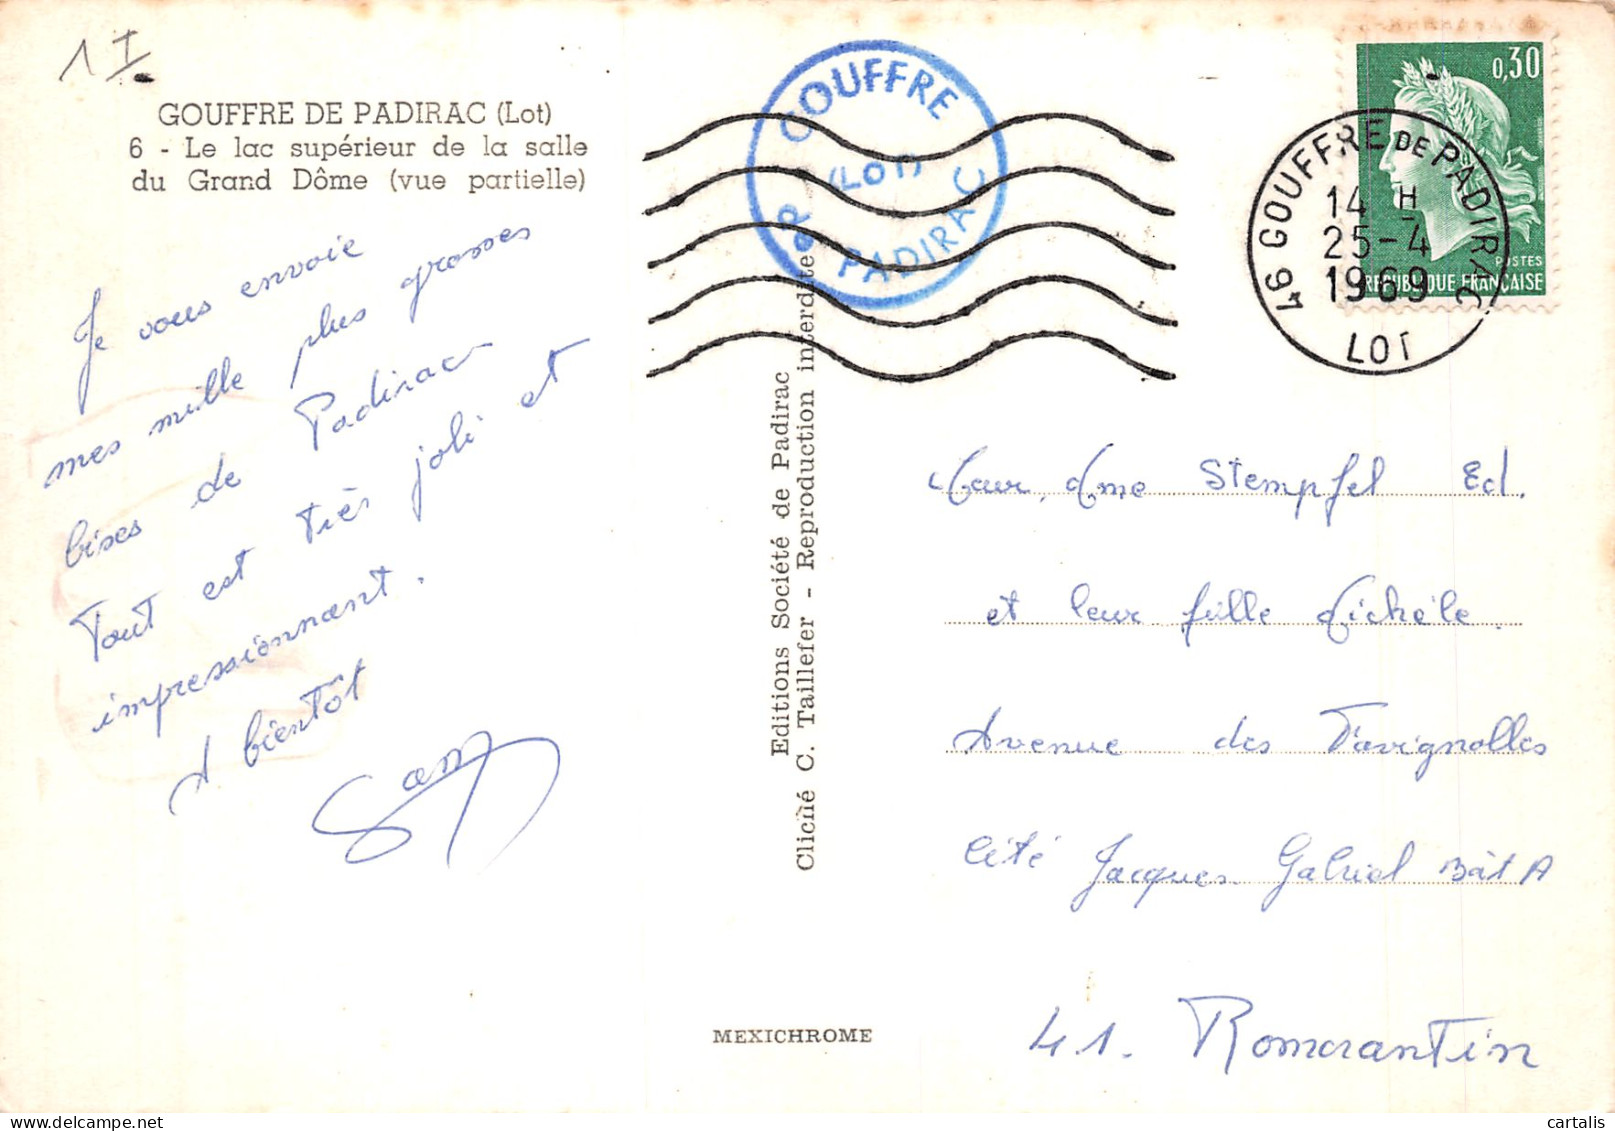 1 I
GOUFFRE DE PADIRAC (Lot)
6 - Le lac supérieur de la salle
du Grand Dôme (vue partielle)
Je vous envoie
mes mille plus grosses
bises de Padirac
Tout est très joli et
impressionnant.
A bientôt
Editions Société de Padirac
Cliché C. Taillefer - Reproduction interdite
MEXICHROME
GOUFFRE
(LOT)
DE PADIRAC
0,30
POSTES
REPUBLIQUE FRANÇAISE
46 GOUFFRE DE PADIRAC
14 H
25-4
1969
LOT
Mme Stempfel Ed.
et leur fille Michèle.
Avenue des Favignolles
Cité Jacques Gabriel Bât A
41. Romorantin
cartalis